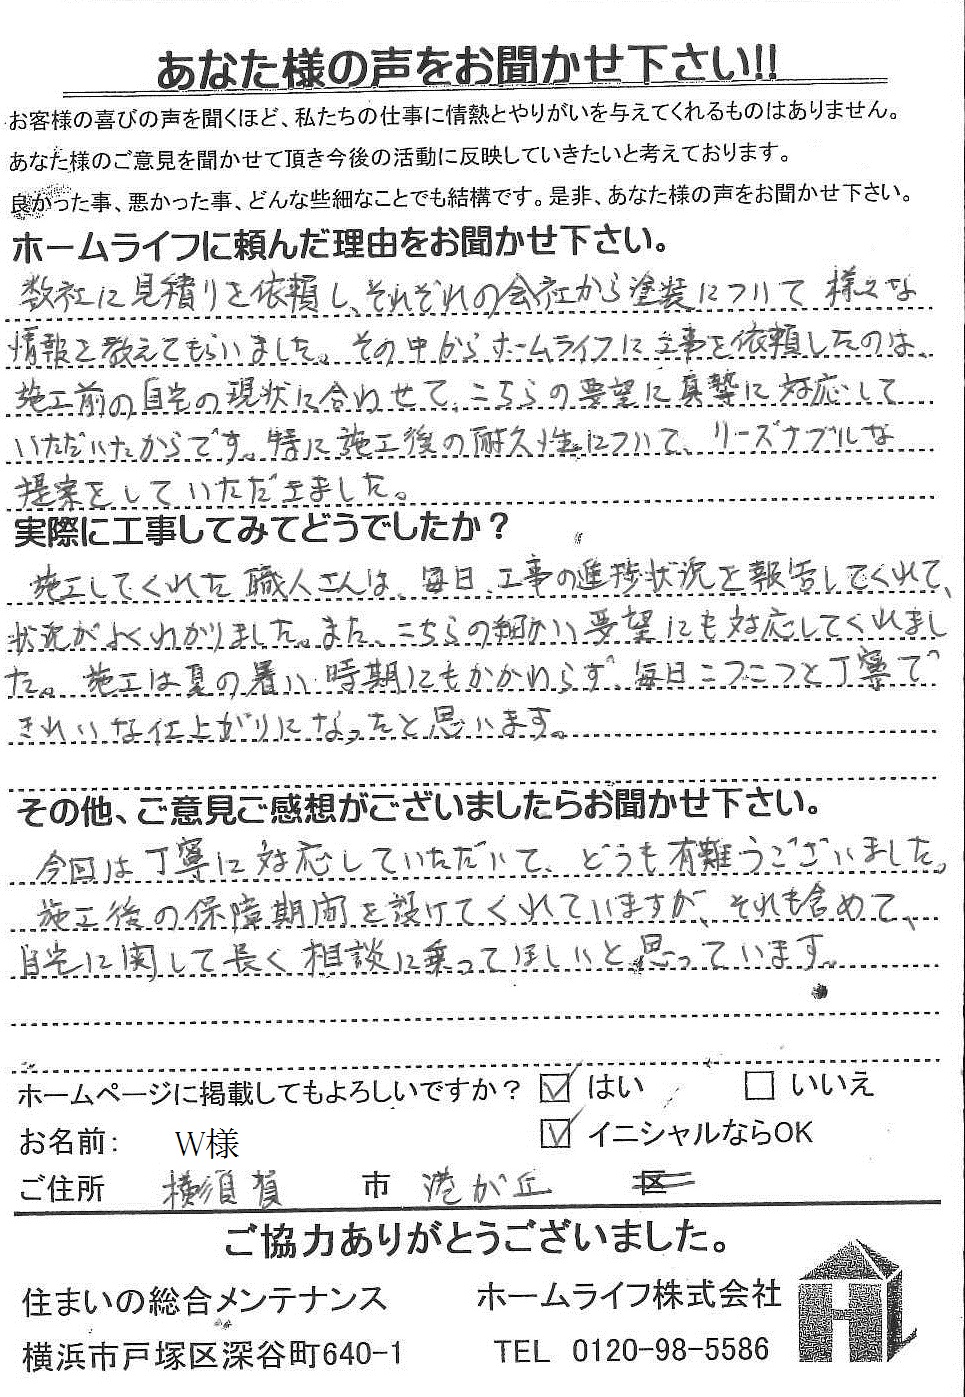 あなた様の声をお聞かせ下さい!!
お客様の喜びの声を聞くほど、私たちの仕事に情熱とやりがいを与えてくれるものはありません。
あなた様のご意見を聞かせて頂き今後の活動に反映していきたいと考えております。
良かった事、悪かった事、どんな些細なことでも結構です。是非、あなた様の声をお聞かせ下さい。
ホームライフに頼んだ理由をお聞かせ下さい。
数社に見積りを依頼し、それぞれの会社から塗装について様々な
情報を教えてもらいました。その中からホームライフに工事を依頼したのは、
施工前の自宅の現状に合わせて、こちらの要望に真摯に対応して
いただいたからです。特に施工後の耐久性について、リーズナブルな
提案をしていただきました。
実際に工事してみてどうでしたか？
施工してくれた職人さんは、毎日、工事の進捗状況を報告してくれて、
状況がよくわかりました。また、こちらの細かい要望にも対応してくれまし
た。施工は夏の暑い時期にもかかわらず、毎日コツコツと丁寧で
きれいな仕上がりになったと思います。
その他、ご意見ご感想がございましたらお聞かせ下さい。
今回は丁寧に対応していただいて、どうも有難うございました。
施工後の保障期間を設けてくれていますが、それも含めて、
自宅に関して長く相談に乗ってほしいと思っています。
ホームページに掲載してもよろしいですか？ ☑ はい □ いいえ
お名前: W様 ☑ イニシャルならOK
ご住所 横須賀 市 港が丘 区
ご協力ありがとうございました。
住まいの総合メンテナンス ホームライフ株式会社
横浜市戸塚区深谷町640-1 TEL 0120-98-5586